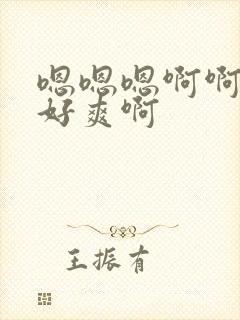 嗯嗯嗯啊啊
好爽啊
王振有